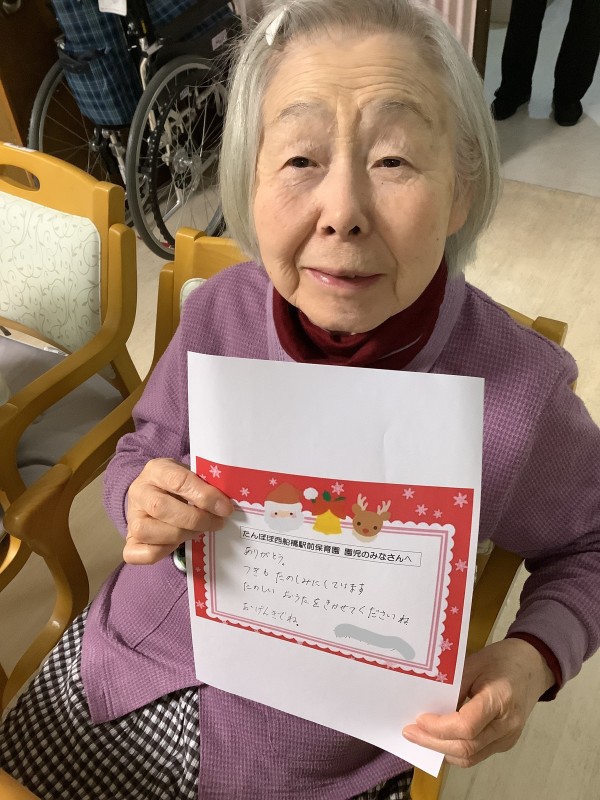 たんぽぽ西船橋駅前保育園 園児のみなさんへ
ありがとう。
つぎも たのしみにています
たのしい おうたをきかせてくださいね
おげんきでね。